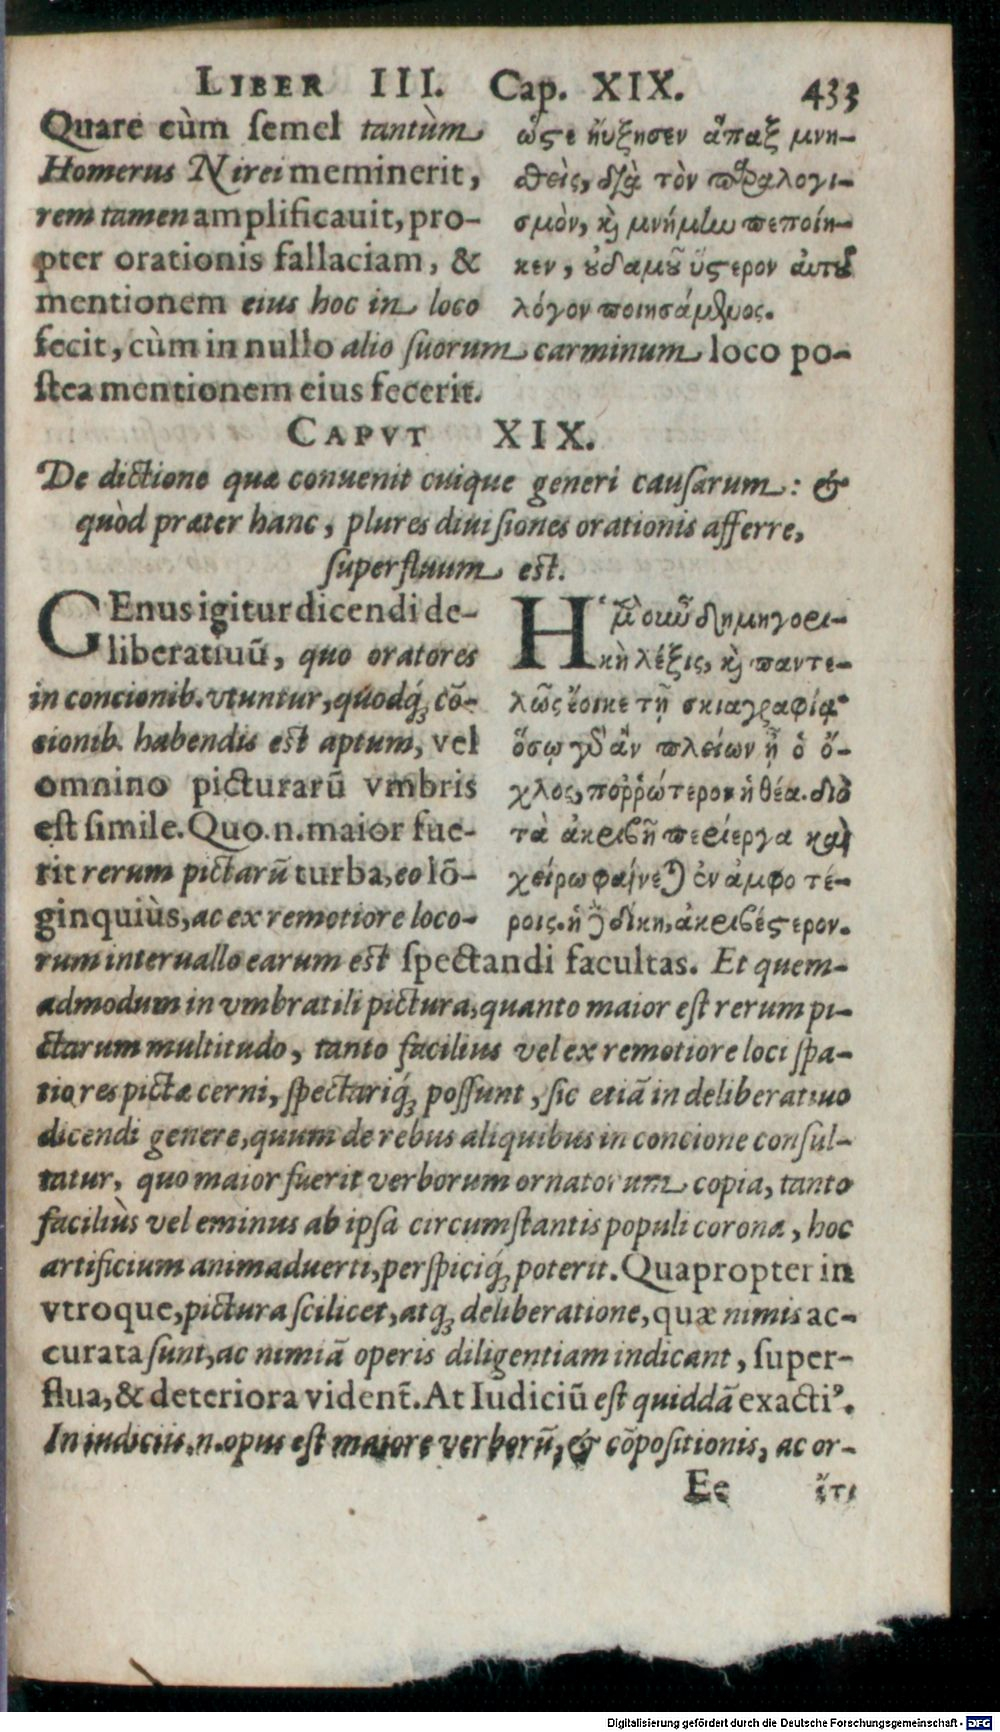 LIBER III. Cap. XIX. 433
Quare cùm semel tantùm
Homerus Nirei meminerit,
rem tamen amplificauit, pro-
pter orationis fallaciam, &
mentionem eius hoc in loco
fecit, cùm in nullo alio suorum carminum loco po-
stea mentionem eius fecerit.
ὥςε ηὔξησεν ἅπαξ μνη-
θεὶς, διὰ τὸν παραλογι-
σμὸν, καὶ μνήμην πεποίη-
κεν, οὐδαμοῦ ὕςερον αὐτοῦ
λόγον ποιησάμενος.
CAPVT XIX.
De dictione quæ conuenit cuique generi causarum: &
quòd præter hanc, plures diuisiones orationis afferre,
superfluum est.
GEnus igitur dicendi de-
liberatiuū, quo oratores
in concionib. vtuntur, quodq́; cō-
cionib. habendis est aptum, vel
omnino picturarū vmbris
est simile. Quo .n. maior fue-
rit rerum pictarū turba, eo lō-
ginquiùs, ac ex remotiore loco-
rum interuallo earum est spectandi facultas. Et quem-
admodum in vmbratili pictura, quanto maior est rerum pi-
ctarum multitudo, tanto facilius vel ex remotiore loci spa-
tio res pictæ cerni, spectariq́; possunt, sic etiā in deliberatiuo
dicendi genere, quum de rebus aliquibus in concione consul-
tatur, quo maior fuerit verborum ornatorum copia, tanto
faciliùs vel eminus ab ipsa circumstantis populi corona, hoc
artificium animaduerti, perspiciq́; poterit. Quapropter in
vtroque, pictura scilicet, atq; deliberatione, quæ nimis ac-
curata sunt, ac nimiā operis diligentiam indicant, super-
flua, & deteriora vident̄. At Iudiciū est quiddā exactiꝰ.
In iudiciis .n. opus est maiore verborū, & cōpositionis, ac or-
Ἡ μὲν οὖν δημηγορι-
κὴ λέξις, καὶ παντε-
λῶς ἔοικε τῇ σκιαγραφίᾳ·
ὅσῳ γὰρ ἂν πλείων ᾖ ὁ ὄ-
χλος, ποῤῥώτερον ἡ θέα. διὸ
τὰ ἀκριβῆ περίεργα καὶ
χείρω φαίνεται ἐν ἀμφοτέ-
ροις. ἡ δὲ δίκη, ἀκριβέςερον.
Ee ἔτι
Digitalisierung gefördert durch die Deutsche Forschungsgemeinschaft - DFG